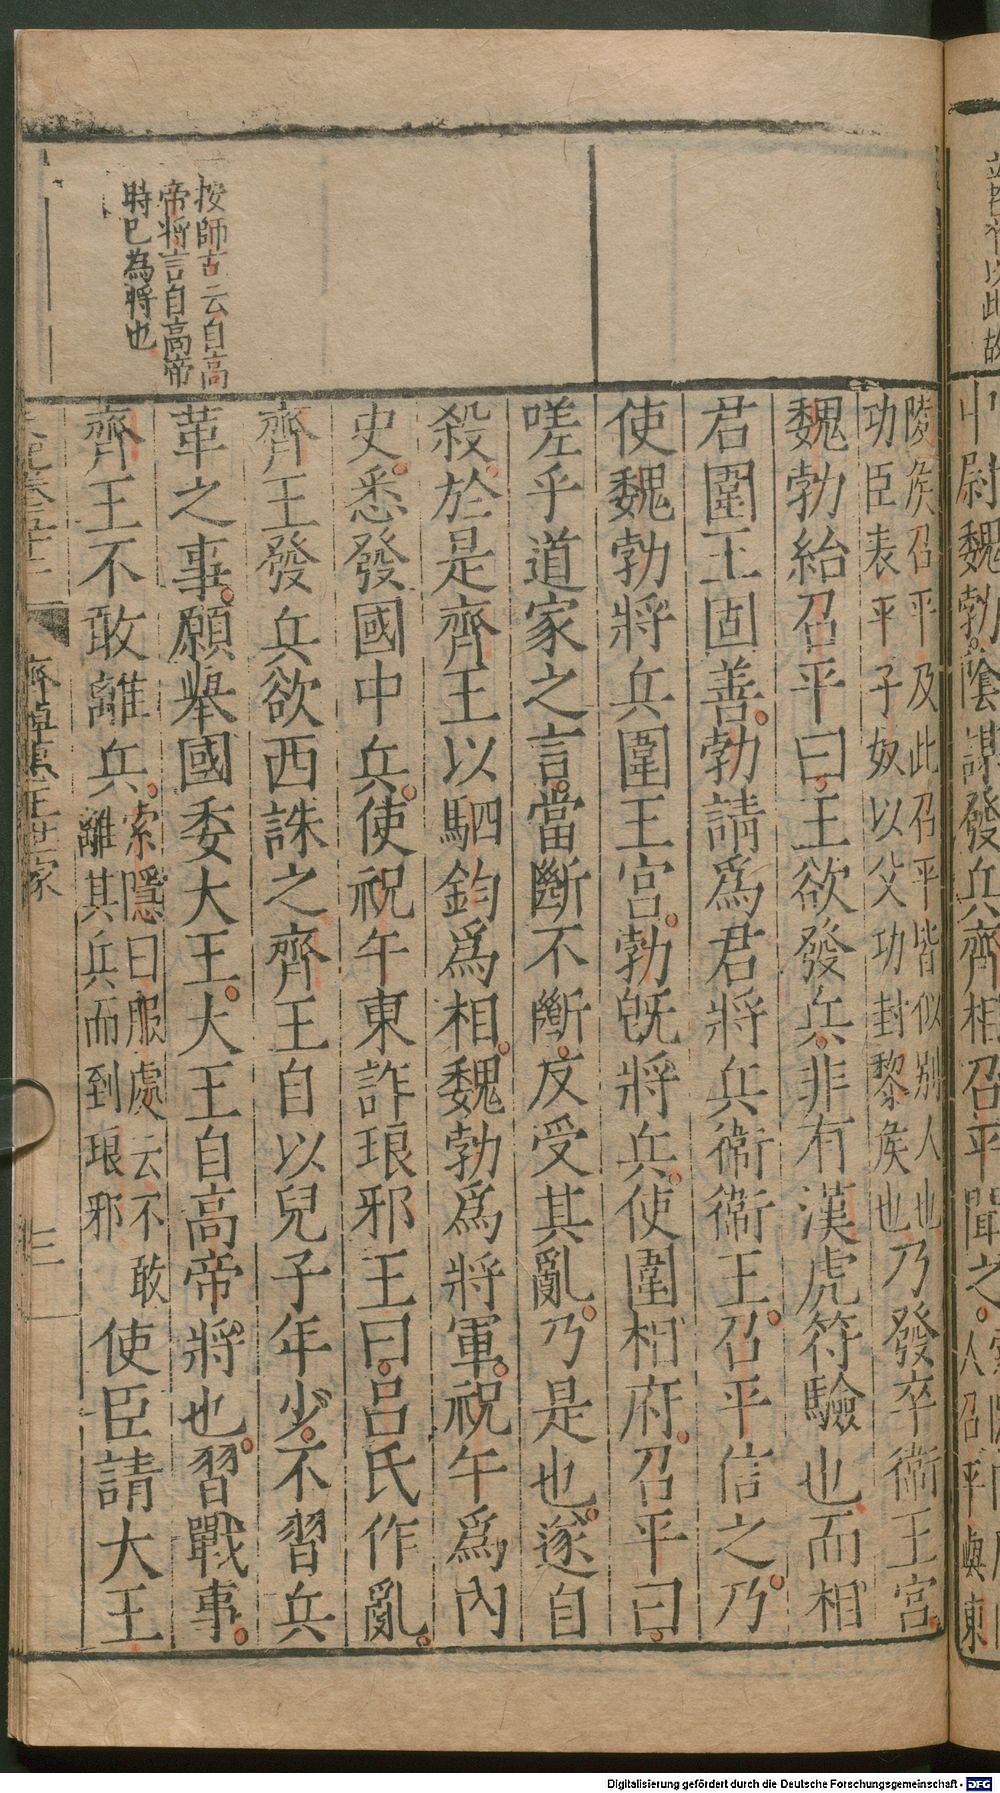 中尉魏勃陰謀發兵齊相召平聞之
陵侯召平及此召平皆似別人也
功臣表平子奴以父功封黎侯也
乃發卒衛王宮
魏勃紿召平曰王欲發兵非有漢虎符驗也而相
君圍王固善勃請爲君將兵衛衛王召平信之乃
使魏勃將兵圍王宮勃旣將兵使圍相府召平曰
嗟乎道家之言當斷不斷反受其亂乃是也遂自
殺於是齊王以駟鈞爲相魏勃爲將軍祝午爲內
史悉發國中兵使祝午東詐琅邪王曰呂氏作亂
齊王發兵欲西誅之齊王自以兒子年少不習兵
革之事願舉國委大王大王自高帝將也習戰事
齊王不敢離兵
索隱曰服處云不敢
離其兵而到琅邪
使臣請大王
按師古云自高
帝將言自高帝
時已為將也
齊悼惠王世家
三
Digitalisierung gefördert durch die Deutsche Forschungsgemeinschaft - DFG